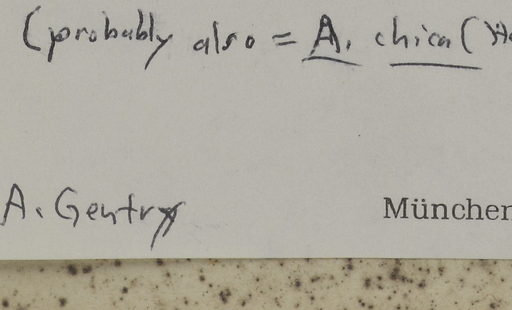 (probably also = A. chica (
A. Gentry
München